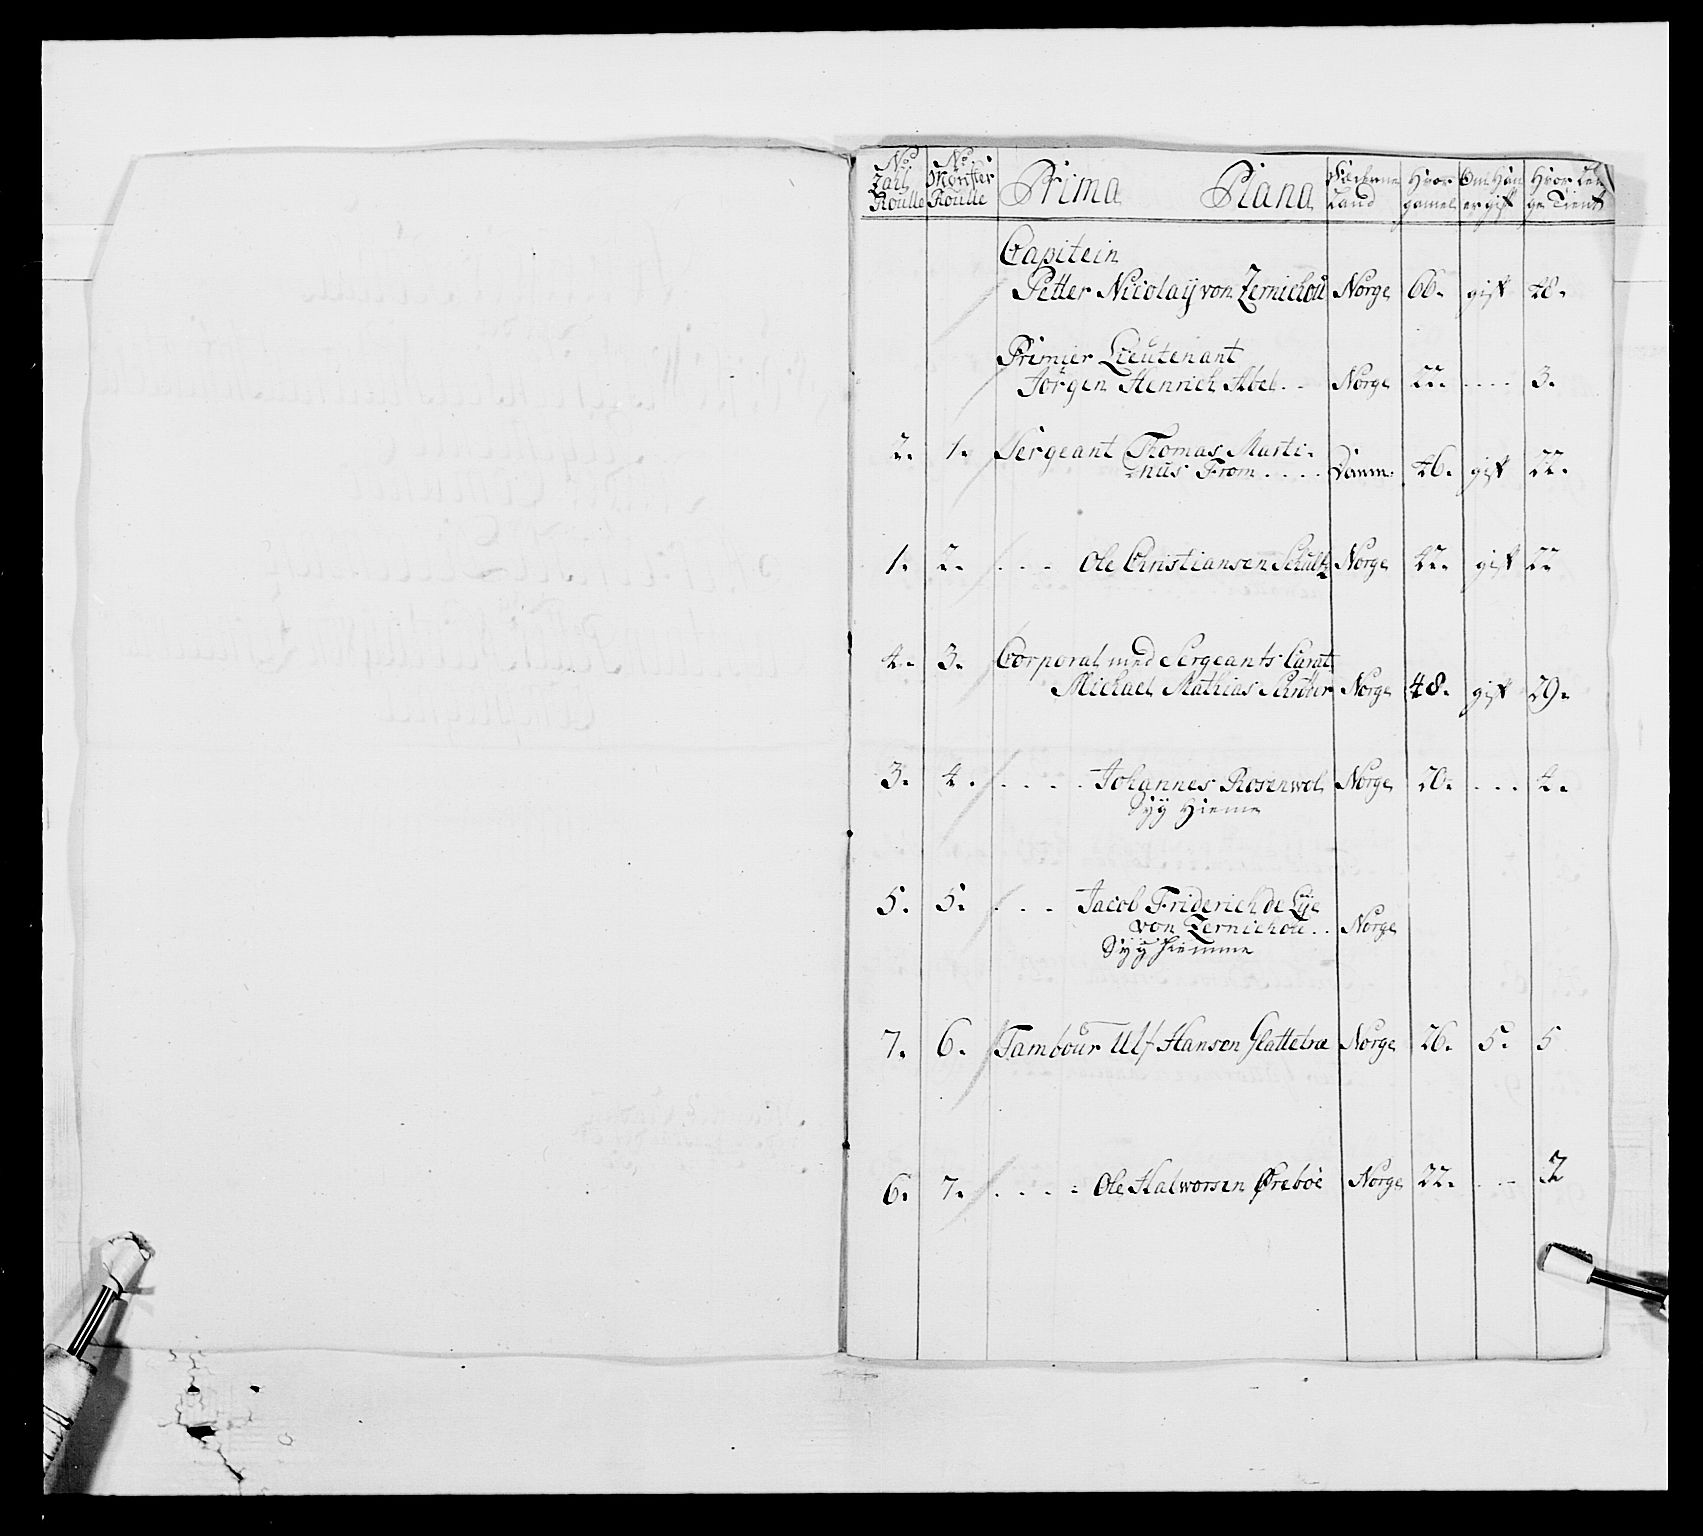 No Zahl Roulle | No Mønster Roulle | Prima Plana | Fæderne Land | Hvor gamel | Om Han er gift | Hvor Len ge Tient
Capitein
Petter Nicolaÿ von Zernichou | Norge | 66. | gift | 48.
Primier Lieutenant
Jörgen Henrich Abel . . | Norge | 22. | . . . . | 3.
2. | 1. | Sergeant Thomas Marti-
nus From . . . . | Danm: | 46. | gift | 22.
1. | 2. | . . . Ole Christiansen Schultz | Norge | 42. | gift | 22
4. | 3. | Corporal med Sergeants Carat.
Michael Mathias | Norge | 48. | gift | 29.
3. | 4. | . . . . Johannes Rosenwol | Norge | 20. | . . . | 4.
Syg Hieme
5. | 5. | . . . Jacob Friderich de Lÿe
von Zernichou . . | Norge
Syg hiemme
7. | 6. | Tambour Ulf Hansen Slattetræ | Norge | 26. | 5. | 5
6. | 7. | . . . . Ole Halworsen Øreböe | Norge | 22. | . . . | 2